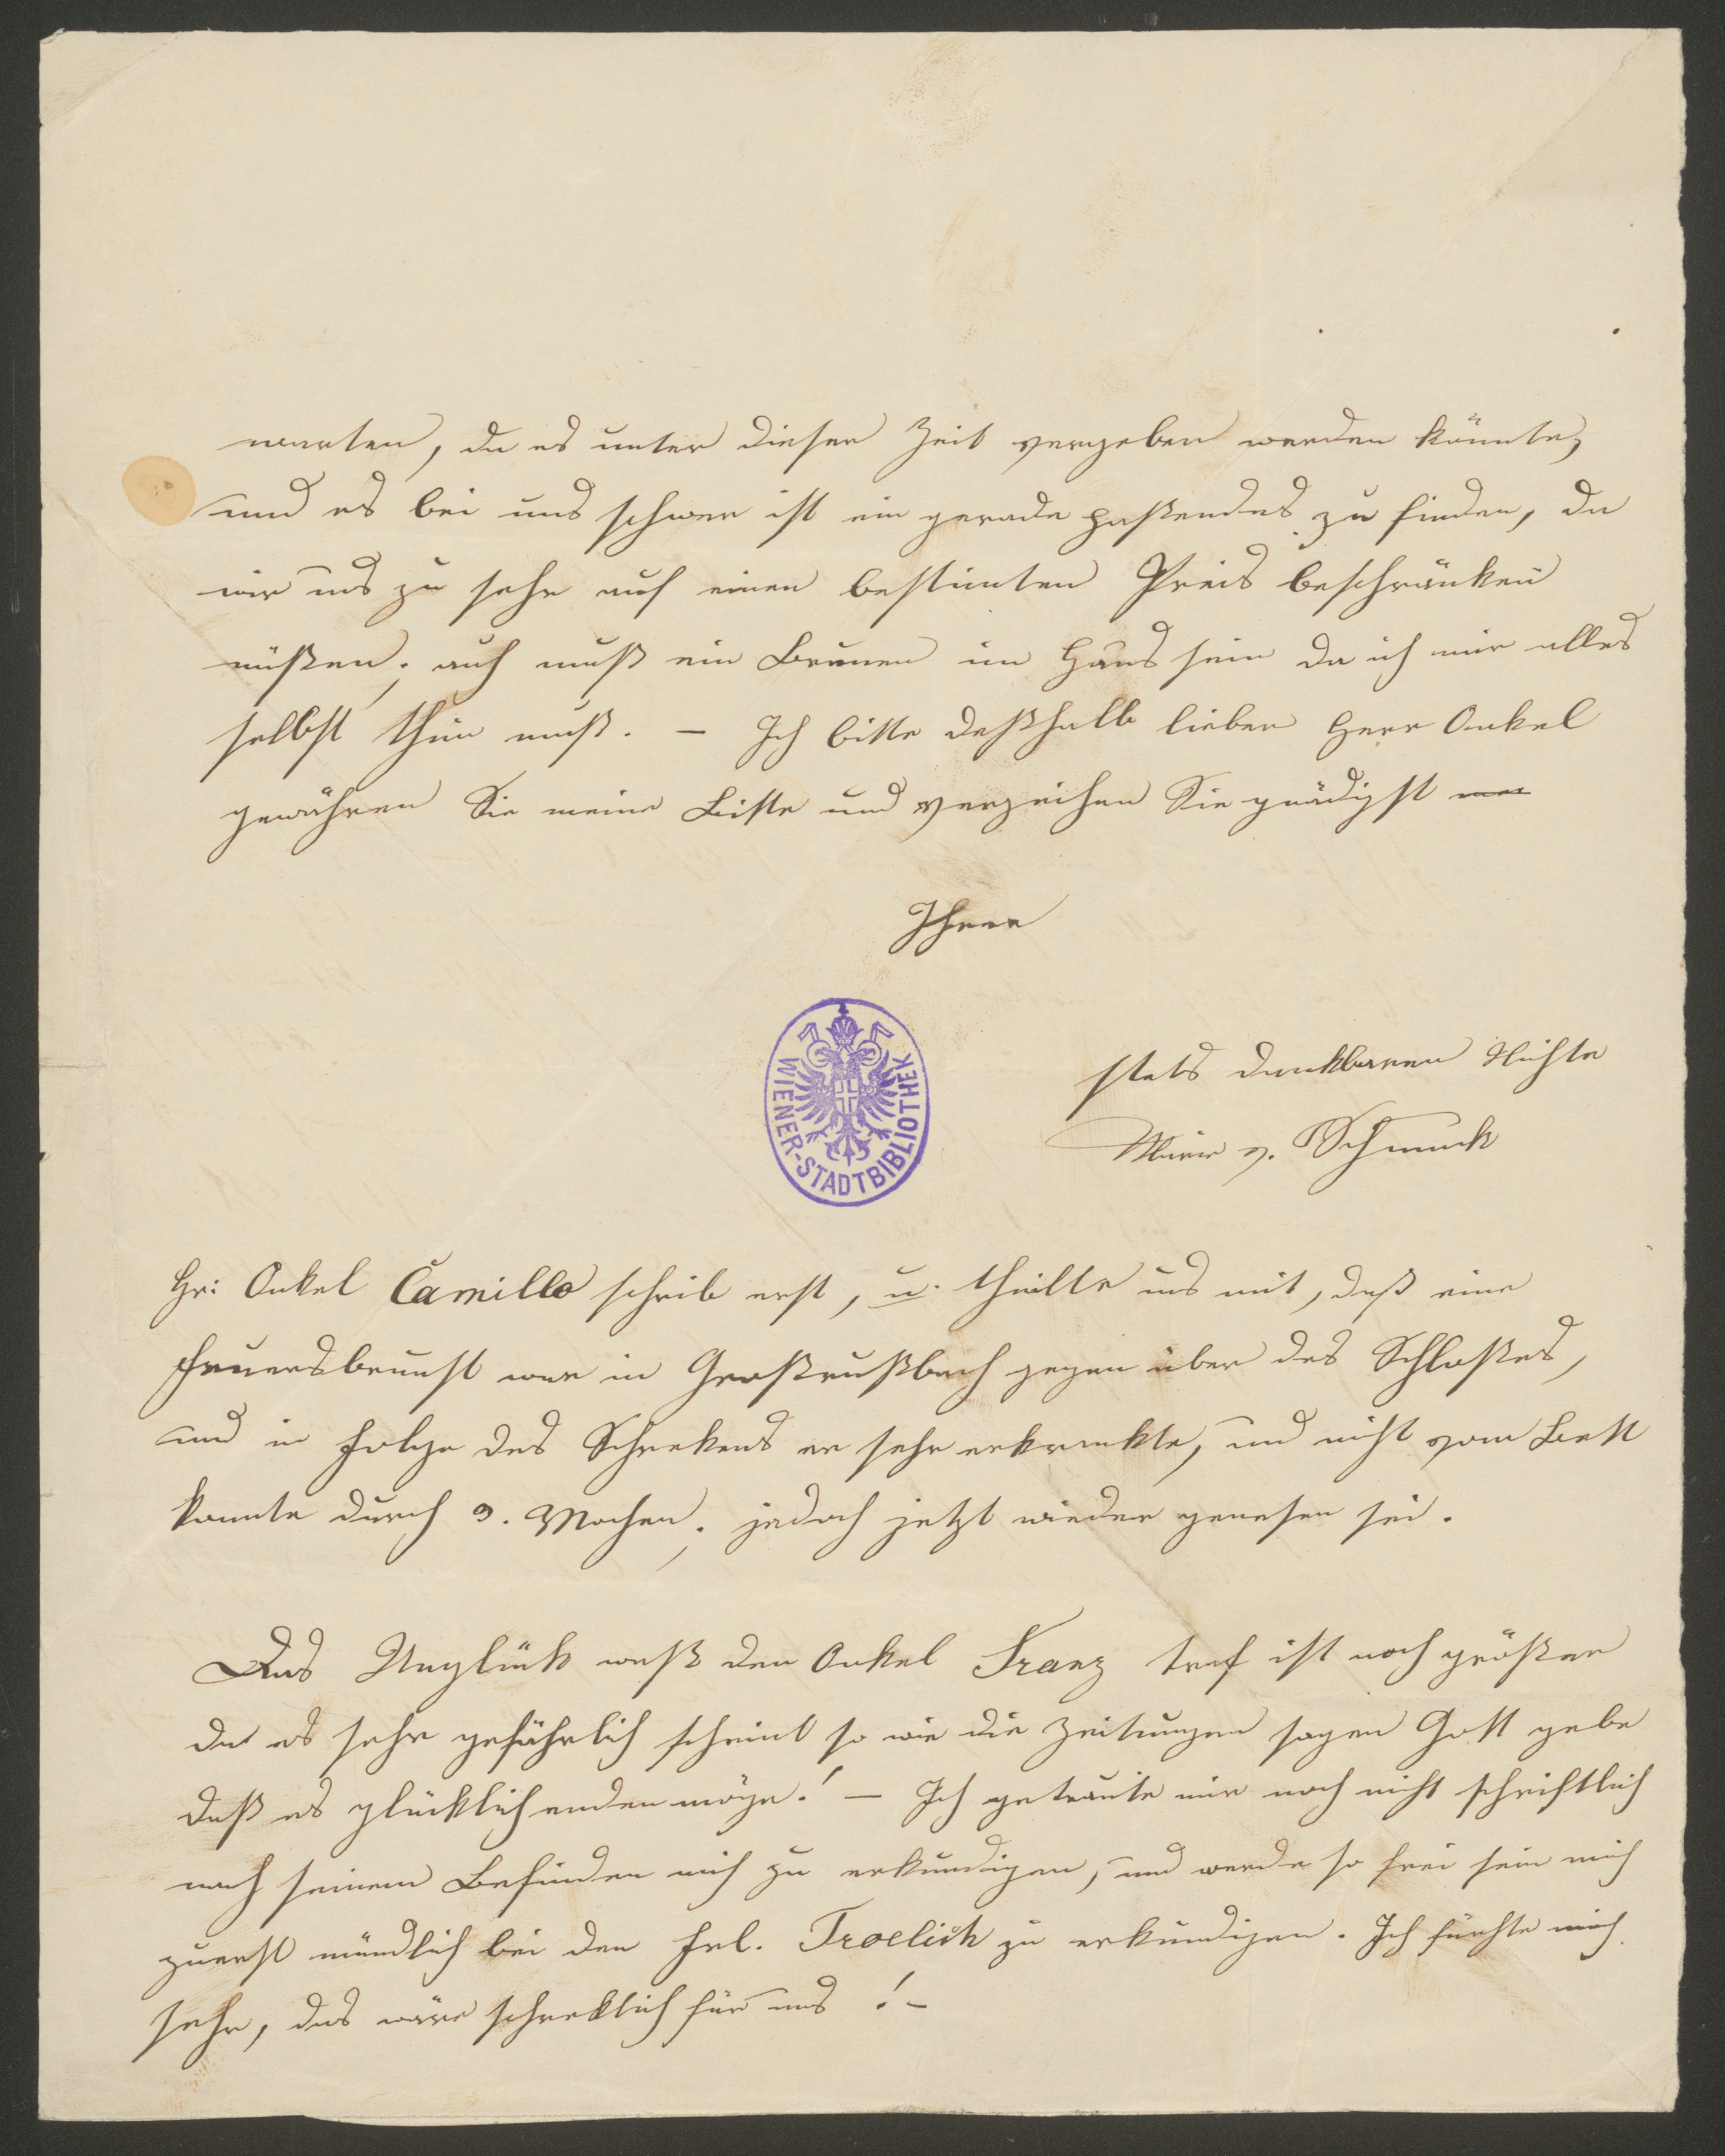 warten, da es unter dieser Zeit vergeben werden könnte,
und es bei uns schwer ist ein gerade paßendes zu finden, da
wir uns zu sehr auf einen bestimten Preis beschränken
müßen; auch muß ein Brunen im Haus sein da ich mir alles
selbst thun muß. – Ich bitte deßhalb lieber Herr Onkel
gewähren Sie meine Bitte und verzeihen Sie gnädigst
Ihrer
WIENER-STADTBIBLIOTHEK
stets dankbaren Nichte
Marie v. Schmuck
Hr: Onkel Camillo schrib erst, u. theilte uns mit, daß eine
Feuersbrunst war in Großrußbach gegen über des Schloßes,
und in Folge des Schrekens er sehr erkrankte, und nicht vom Bett
konnte durch 3. Wochen; jedoch jetzt wieder genesen sei.
Das Unglük waß den Onkel Franz traf ist noch größer
da es sehr gefährlich scheint so wie die Zeitungen sagen Gott gebe
daß es glücklich enden möge! – Ich getraute mir noch nicht schriftlich
nach seinem Befinden mich zu erkundigen, und werde so frei sein mich
zuerst mündlich bei den Frl. Froelich zu erkundigen. Ich fürchte mich
sehr, das wäre schreklich für uns! –